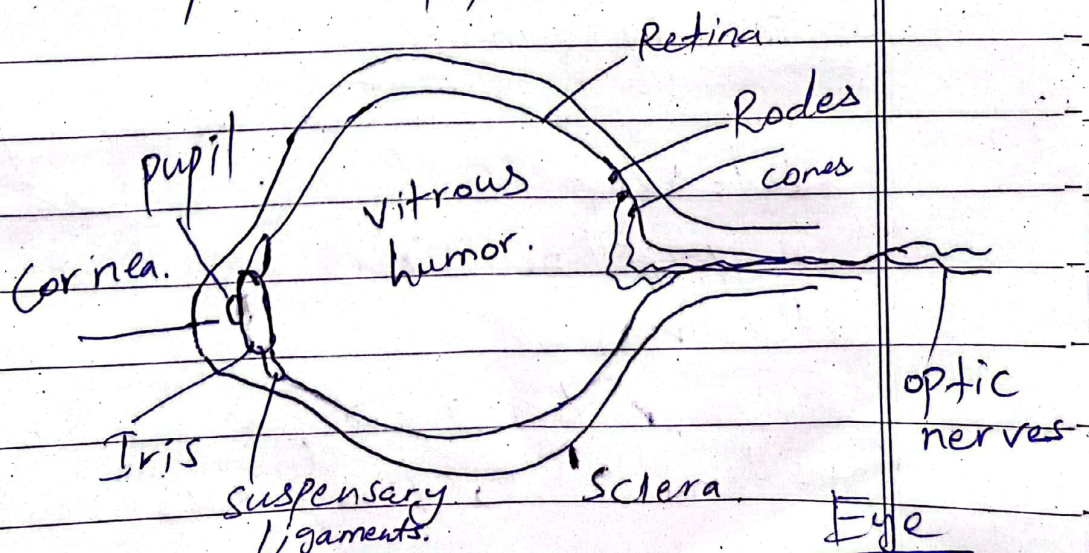 Retina
Rodes
cones
pupil
vitrous
humor.
Cornea.
optic
nerves
Iris
suspensary
ligaments.
Sclera.
Eye